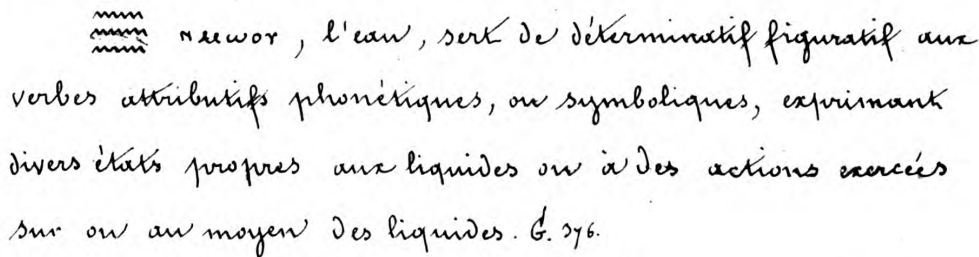 𓈗 ⲡⲙⲱⲟⲩ, l'eau, sert de déterminatif figuratif aux
verbes attributifs phonétiques, ou symboliques, exprimant
divers états propres aux liquides ou à des actions exercées
sur ou au moyen des liquides. G. 376.